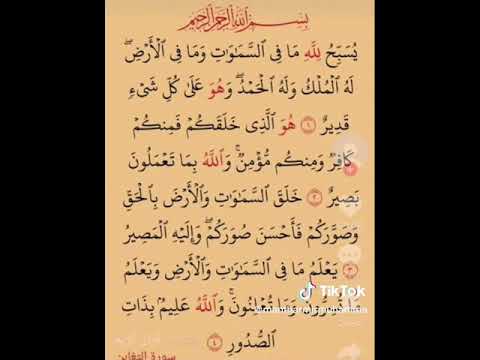 بِسْمِ ٱللَّهِ ٱلرَّحْمَٰنِ ٱلرَّحِيمِ
يُسَبِّحُ لِلَّهِ مَا فِى ٱلسَّمَٰوَٰتِ وَمَا فِى ٱلْأَرْضِ ۖ
لَهُ ٱلْمُلْكُ وَلَهُ ٱلْحَمْدُ ۖ وَهُوَ عَلَىٰ كُلِّ شَىْءٍ
قَدِيرٌ ١ هُوَ ٱلَّذِى خَلَقَكُمْ فَمِنكُمْ
كَافِرٌ وَمِنكُم مُّؤْمِنٌ ۚ وَٱللَّهُ بِمَا تَعْمَلُونَ
بَصِيرٌ ٢ خَلَقَ ٱلسَّمَٰوَٰتِ وَٱلْأَرْضَ بِٱلْحَقِّ
وَصَوَّرَكُمْ فَأَحْسَنَ صُوَرَكُمْ ۖ وَإِلَيْهِ ٱلْمَصِيرُ
٣ يَعْلَمُ مَا فِى ٱلسَّمَٰوَٰتِ وَٱلْأَرْضِ وَيَعْلَمُ
مَا تُسِرُّونَ وَمَا تُعْلِنُونَ ۚ وَٱللَّهُ عَلِيمٌۢ بِذَاتِ
ٱلصُّدُورِ ٤
سورة التغابن
TikTok